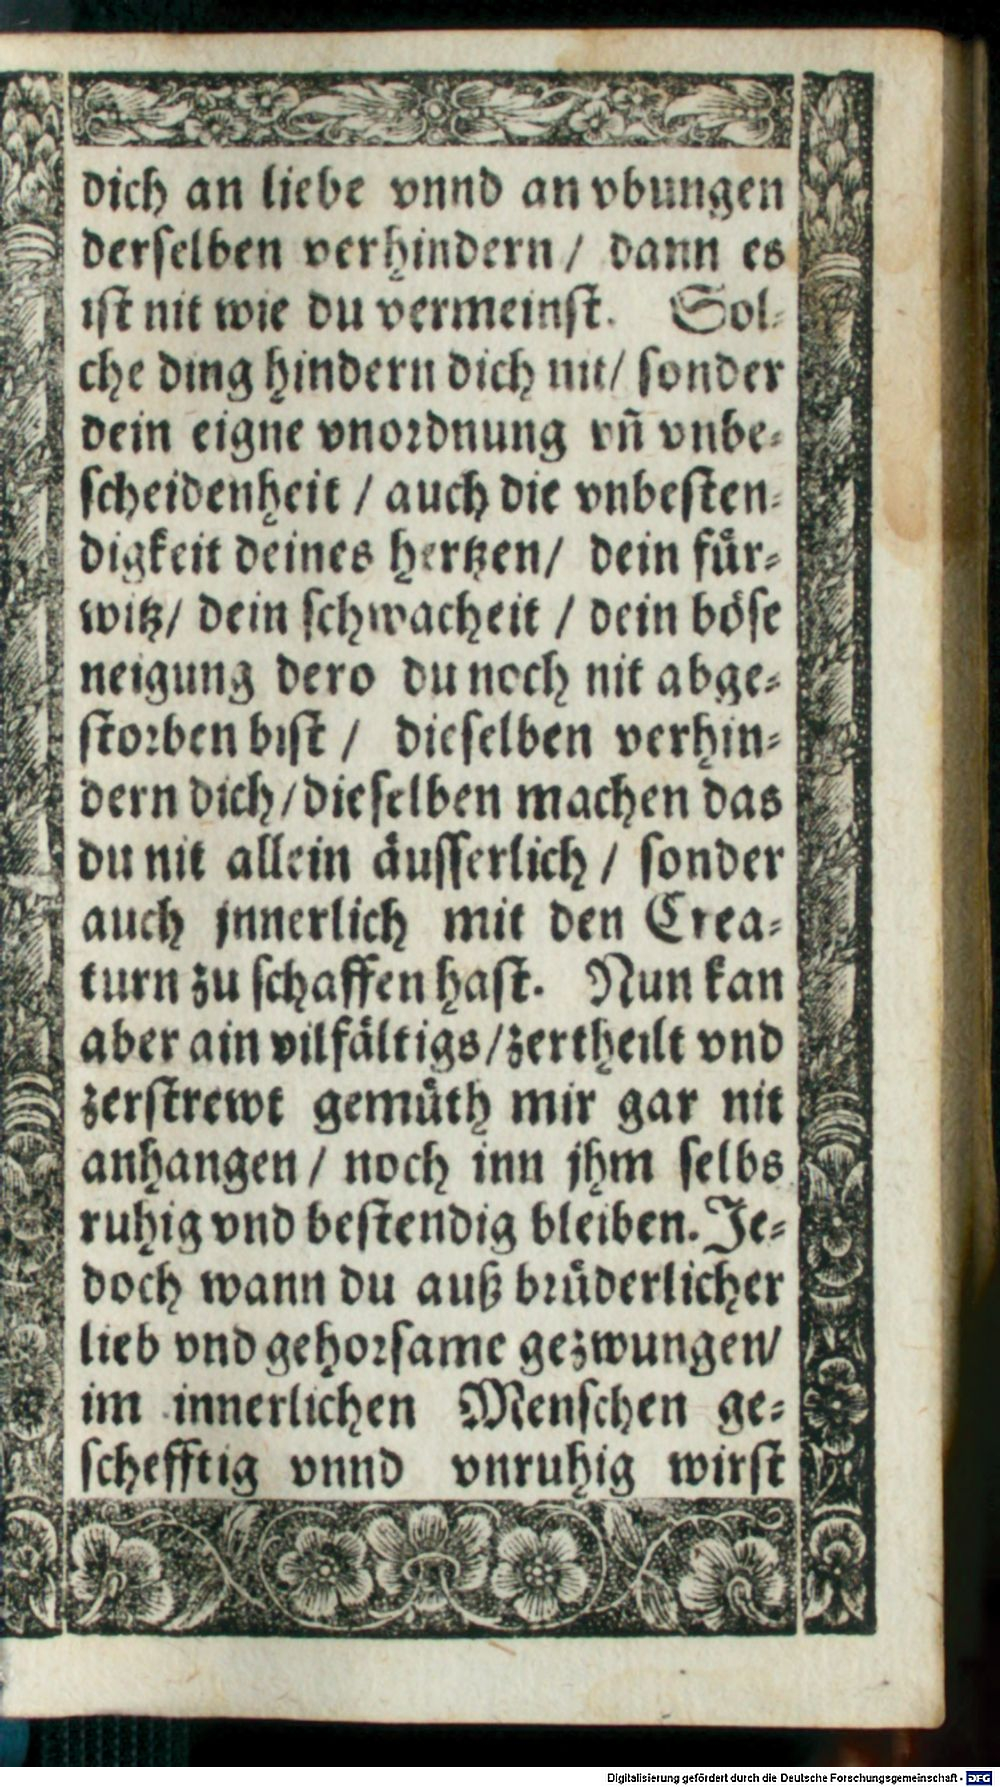 dich an liebe vnnd an vbungen
derselben verhindern / dann es
ist nit wie du vermeinst. Sol-
che ding hindern dich nit / sonder
dein eigne vnordnung vñ vnbe-
scheidenheit / auch die vnbesten-
digkeit deines hertzen / dein für-
witz / dein schwacheit / dein böse
neigung dero du noch nit abge-
storben bist / dieselben verhin-
dern dich / dieselben machen das
du nit allein äusserlich / sonder
auch jnnerlich mit den Crea-
turn zu schaffen hast. Nun kan
aber ain vilfältigs / zertheilt vnd
zerstrewt gemüth mir gar nit
anhangen / noch inn jhm selbs
ruhig vnd bestendig bleiben. Je-
doch wann du auß brüderlicher
lieb vnd gehorsame gezwungen /
im innerlichen Menschen ge-
schefftig vnnd vnruhig wirst
Digitalisierung gefördert durch die Deutsche Forschungsgemeinschaft - DFG